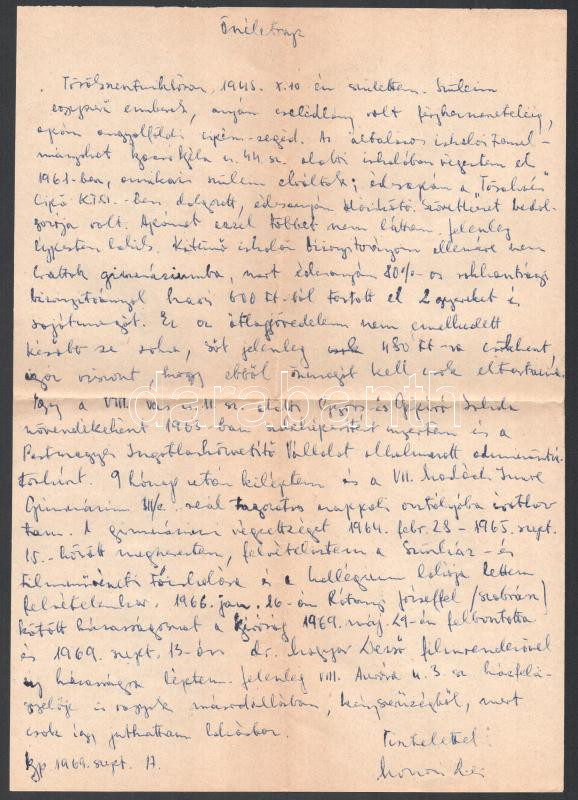 Önéletrajz
1945. X. 10-én születtem. Szüleim
egyszerű emberek, anyám cselédlány volt férjhezmeneteléig,
apám angyalföldi cipész-segéd. Az általános iskolai tanul-
mányokat u. 44. sz. alatti iskolában végeztem el
1961-ben, amikor szüleim elváltak; édesapám a "
Cipő KTSZ.-ben dolgozott, édesanyám szövetkezet bedol-
gozója volt. Apámat ezzel többet nem láttam. Jelenleg
lakik. Kitűnő iskolai bizonyítványom ellenére nem
vettek gimnáziumba, mert édesanyám 80%-os rokkantsági
bizonyítvánnyal havi 600 Ft-ból tartott el 2 gyereket és
sajátmagát. Ez az átlagjövedelem nem emelkedett
később se soha, sőt jelenleg 480 Ft-ra csökkent,
igaz viszont, hogy ebből önmagát kell csak eltartania.
Így a VIII. Vas u. 11 sz. alatti Gyors és Gépíró Iskola
növendékeként 1963-ban szakképesítést nyertem és a
Pestmegyei Ingatlanközvetítő Vállalat alkalmazott adminisztrá-
torként. 9 hónap után kiléptem és a VII. Madách Imre
Gimnázium III/c. reál tagozatos nappali osztályába iratkoz-
tam. A gimnáziumi végzettséget 1964. febr. 28 - 1965. szept.
15. között megszereztem, felvételiztem a Színház- és
Filmművészeti Főiskolára és a kollégium lakója lettem
felvételemkor. 1966. jan. 26-án Józseffel (szobrász)
kötött házasságomat a bíróság 1969. máj. 29-én felbontotta
és 1969. szept. 13-án dr. Magyar Dezső filmrendezővel
új házasságra léptem. Jelenleg VIII. Auróra u. 3. sz. házfelü-
gyelője is vagyok másodállásban, kényszerűségből, mert
csak így juthattam lakáshoz.
Tisztelettel:
Bp. 1969. szept. 17.
darabanth